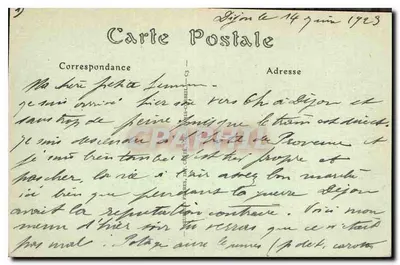 Dijon le 14 juin 1923
Carte Postale
Correspondance
Adresse
Ma chère petite
Je suis arrivé hier soir vers 6h à Dijon et
sans trop de peine puisque le train est direct.
Je suis descendu à l'hôtel de Provence et
je suis bien tombé. C'est propre et
pas cher, la vie à l'air assez bon marché
ici bien que pendant la guerre Dijon
avait la réputation contraire. Voici mon
menu d'hier soir tu verras que ce n'était
pas mal. Potage aux (p. de t. carottes